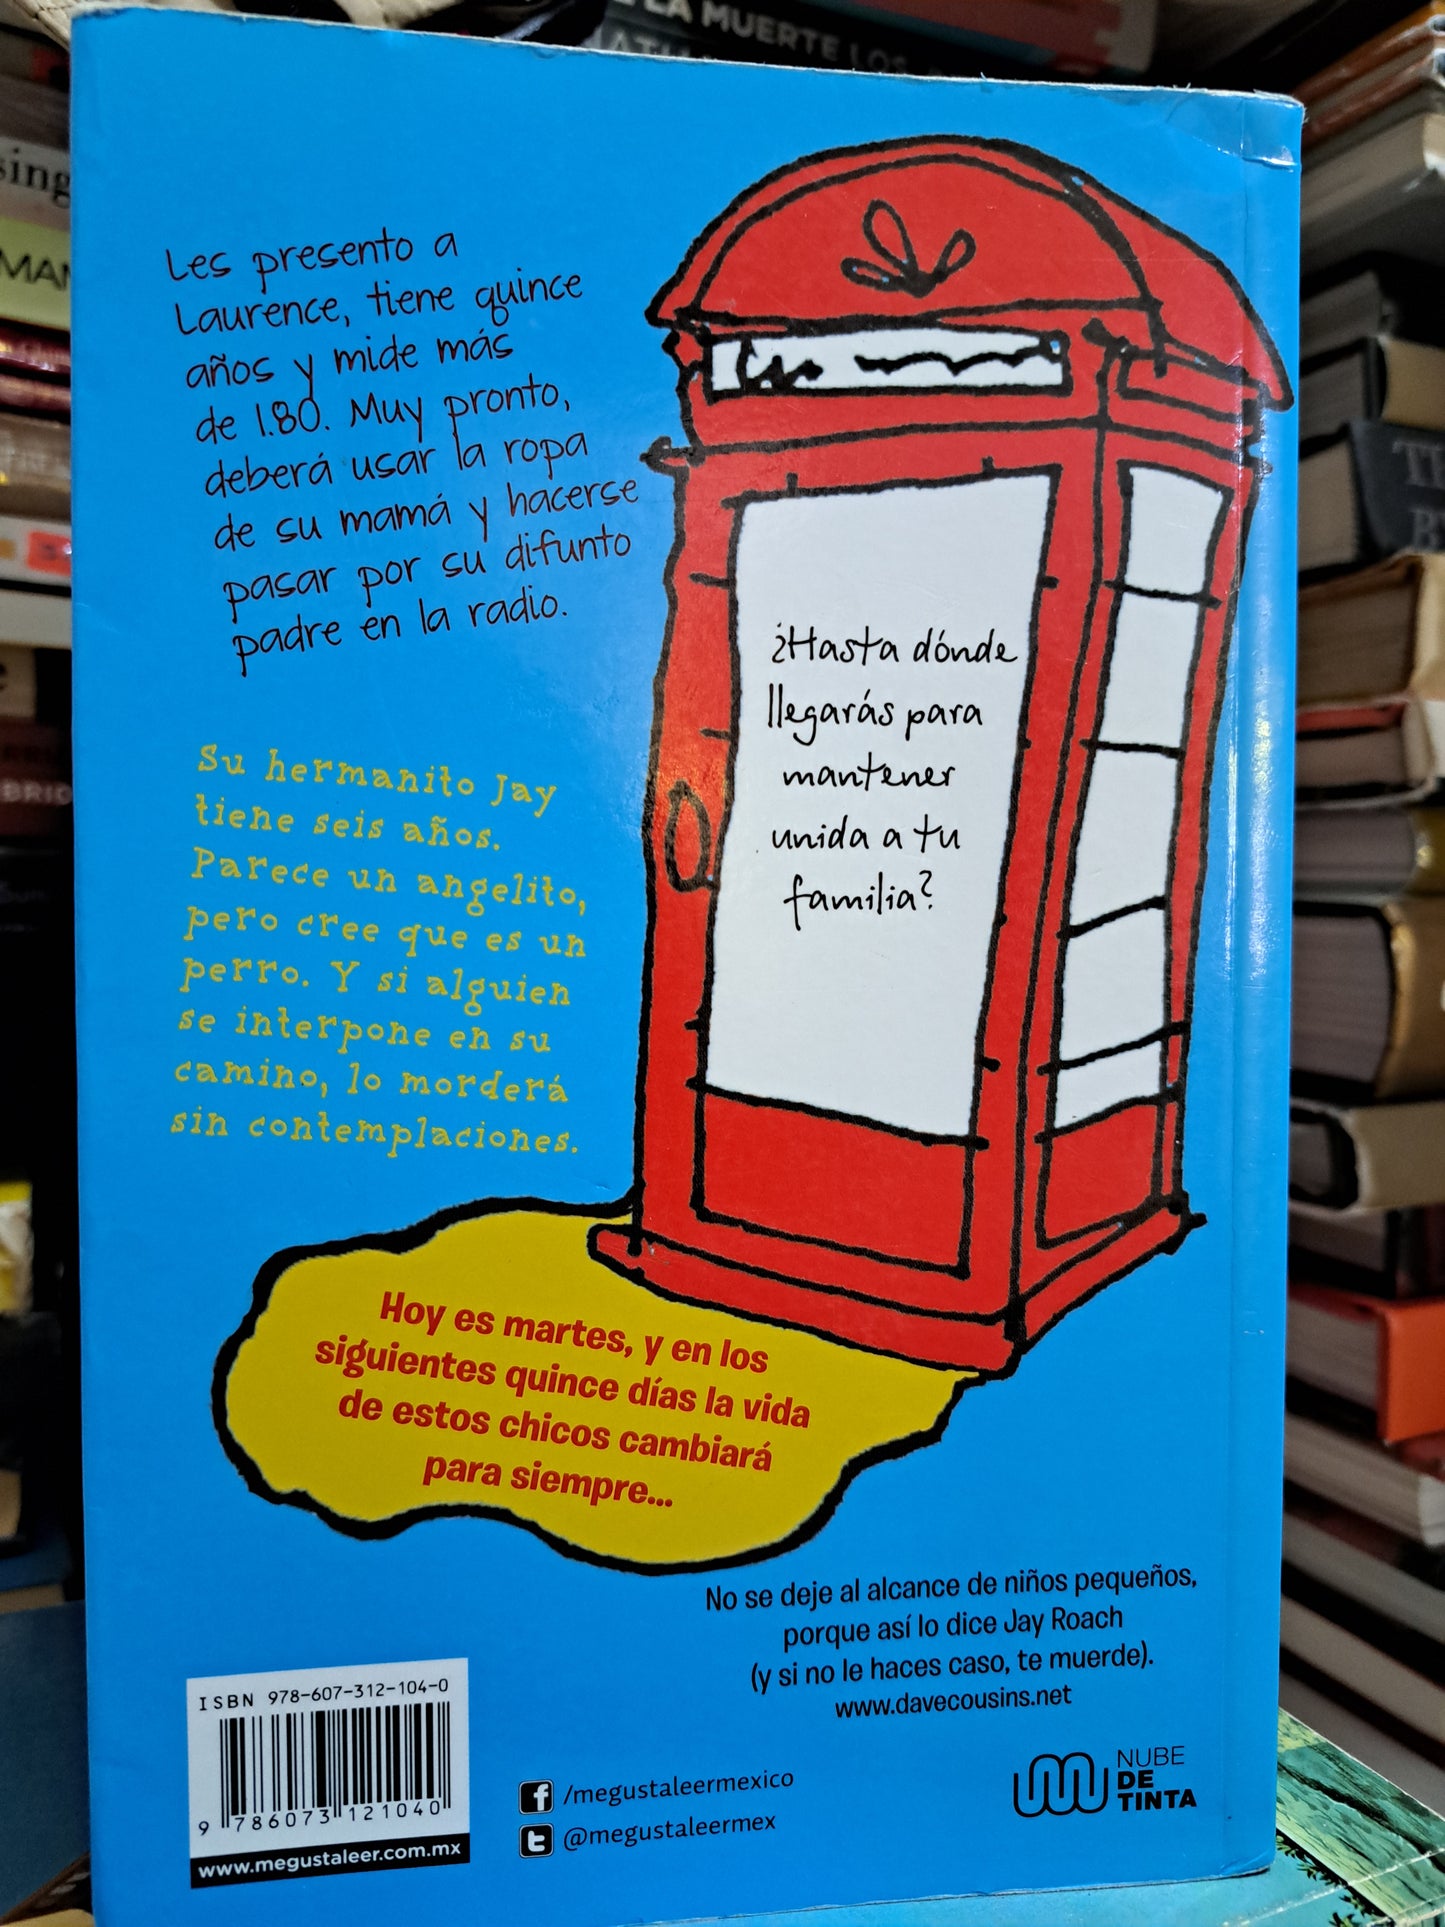 LA MUERTE LOS
sing
MAN
BRID
Les presento a
Laurence, tiene quince
años y mide más
de 1.80. Muy pronto,
deberá usar la ropa
de su mamá y hacerse
pasar por su difunto
padre en la radio.
¿Hasta dónde
llegarás para
mantener
unida a tu
familia?
Su hermanito Jay
tiene seis años.
Parece un angelito,
pero cree que es un
perro. Y si alguien
se interpone en su
camino, lo morderá
sin contemplaciones.
Hoy es martes, y en los
siguientes quince días la vida
de estos chicos cambiará
para siempre...
No se deje al alcance de niños pequeños,
porque así lo dice Jay Roach
(y si no le haces caso, te muerde).
www.davecousins.net
ISBN 978-607-312-104-0
9 786073 121040
www.megustaleer.com.mx
f /megustaleermexico
t @megustaleermex
NUBE
DE
TINTA